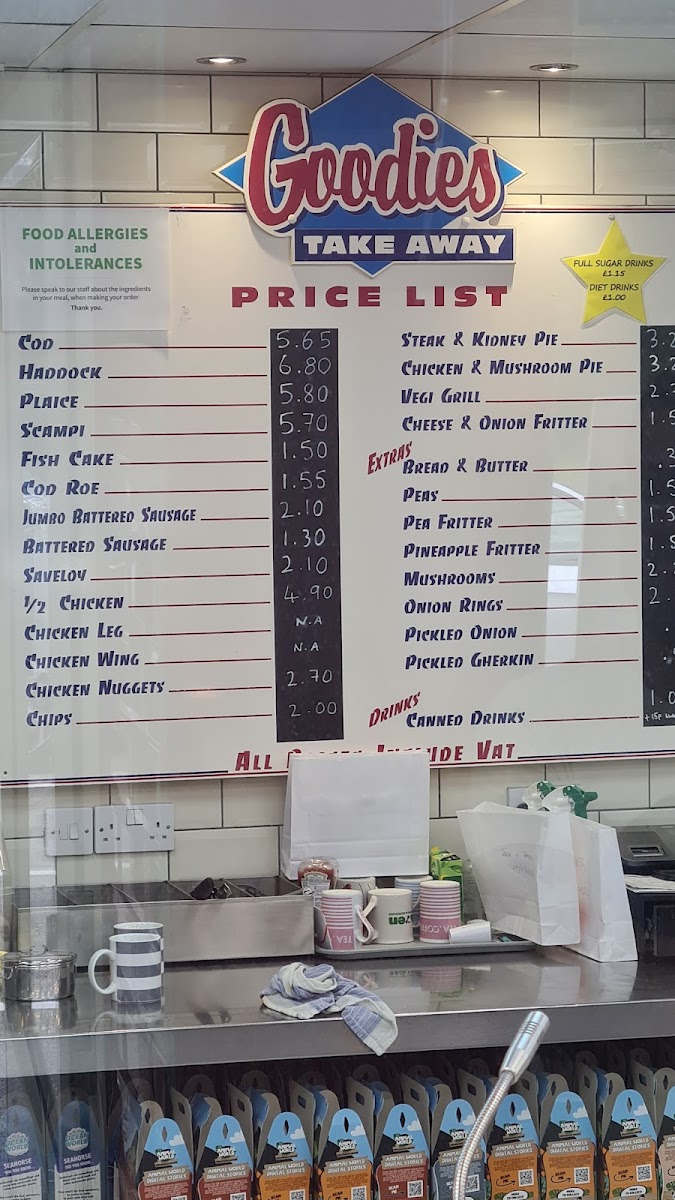 Goodies
TAKE AWAY
PRICE LIST
FOOD ALLERGIES
and
INTOLERANCES
Please speak to our staff about the ingredients
in your meal, when making your order.
Thank you.
FULL SUGAR DRINKS
£1.15
DIET DRINKS
£1.00
COD 5.65
HADDOCK 6.80
PLAICE 5.80
SCAMPI 5.70
FISH CAKE 1.50
COD ROE 1.55
JUMBO BATTERED SAUSAGE 2.10
BATTERED SAUSAGE 1.30
SAVELOY 2.10
1/2 CHICKEN 4.90
CHICKEN LEG N.A
CHICKEN WING N.A
CHICKEN NUGGETS 2.70
CHIPS 2.00
STEAK & KIDNEY PIE 3.2
CHICKEN & MUSHROOM PIE 3.2
VEGI GRILL 2.
CHEESE & ONION FRITTER 1.5
EXTRAS
BREAD & BUTTER
PEAS 1.5
PEA FRITTER 1.5
PINEAPPLE FRITTER 1.5
MUSHROOMS 2.
ONION RINGS 2.
PICKLED ONION
PICKLED GHERKIN
DRINKS
CANNED DRINKS 1.0
+15p
ALL INCLUDE VAT
TEA.COFF
TEA.COFF
SEAHORSE
ANIMAL WORLD
DIGITAL STORIES
ANIMAL WORLD
DIGITAL STORIES
ANIMAL WORLD
DIGITAL STORIES
ANIMAL WORLD
DIGITAL STORIES
ANIMAL WORLD
DIGITAL STORIES
SCAN
ME